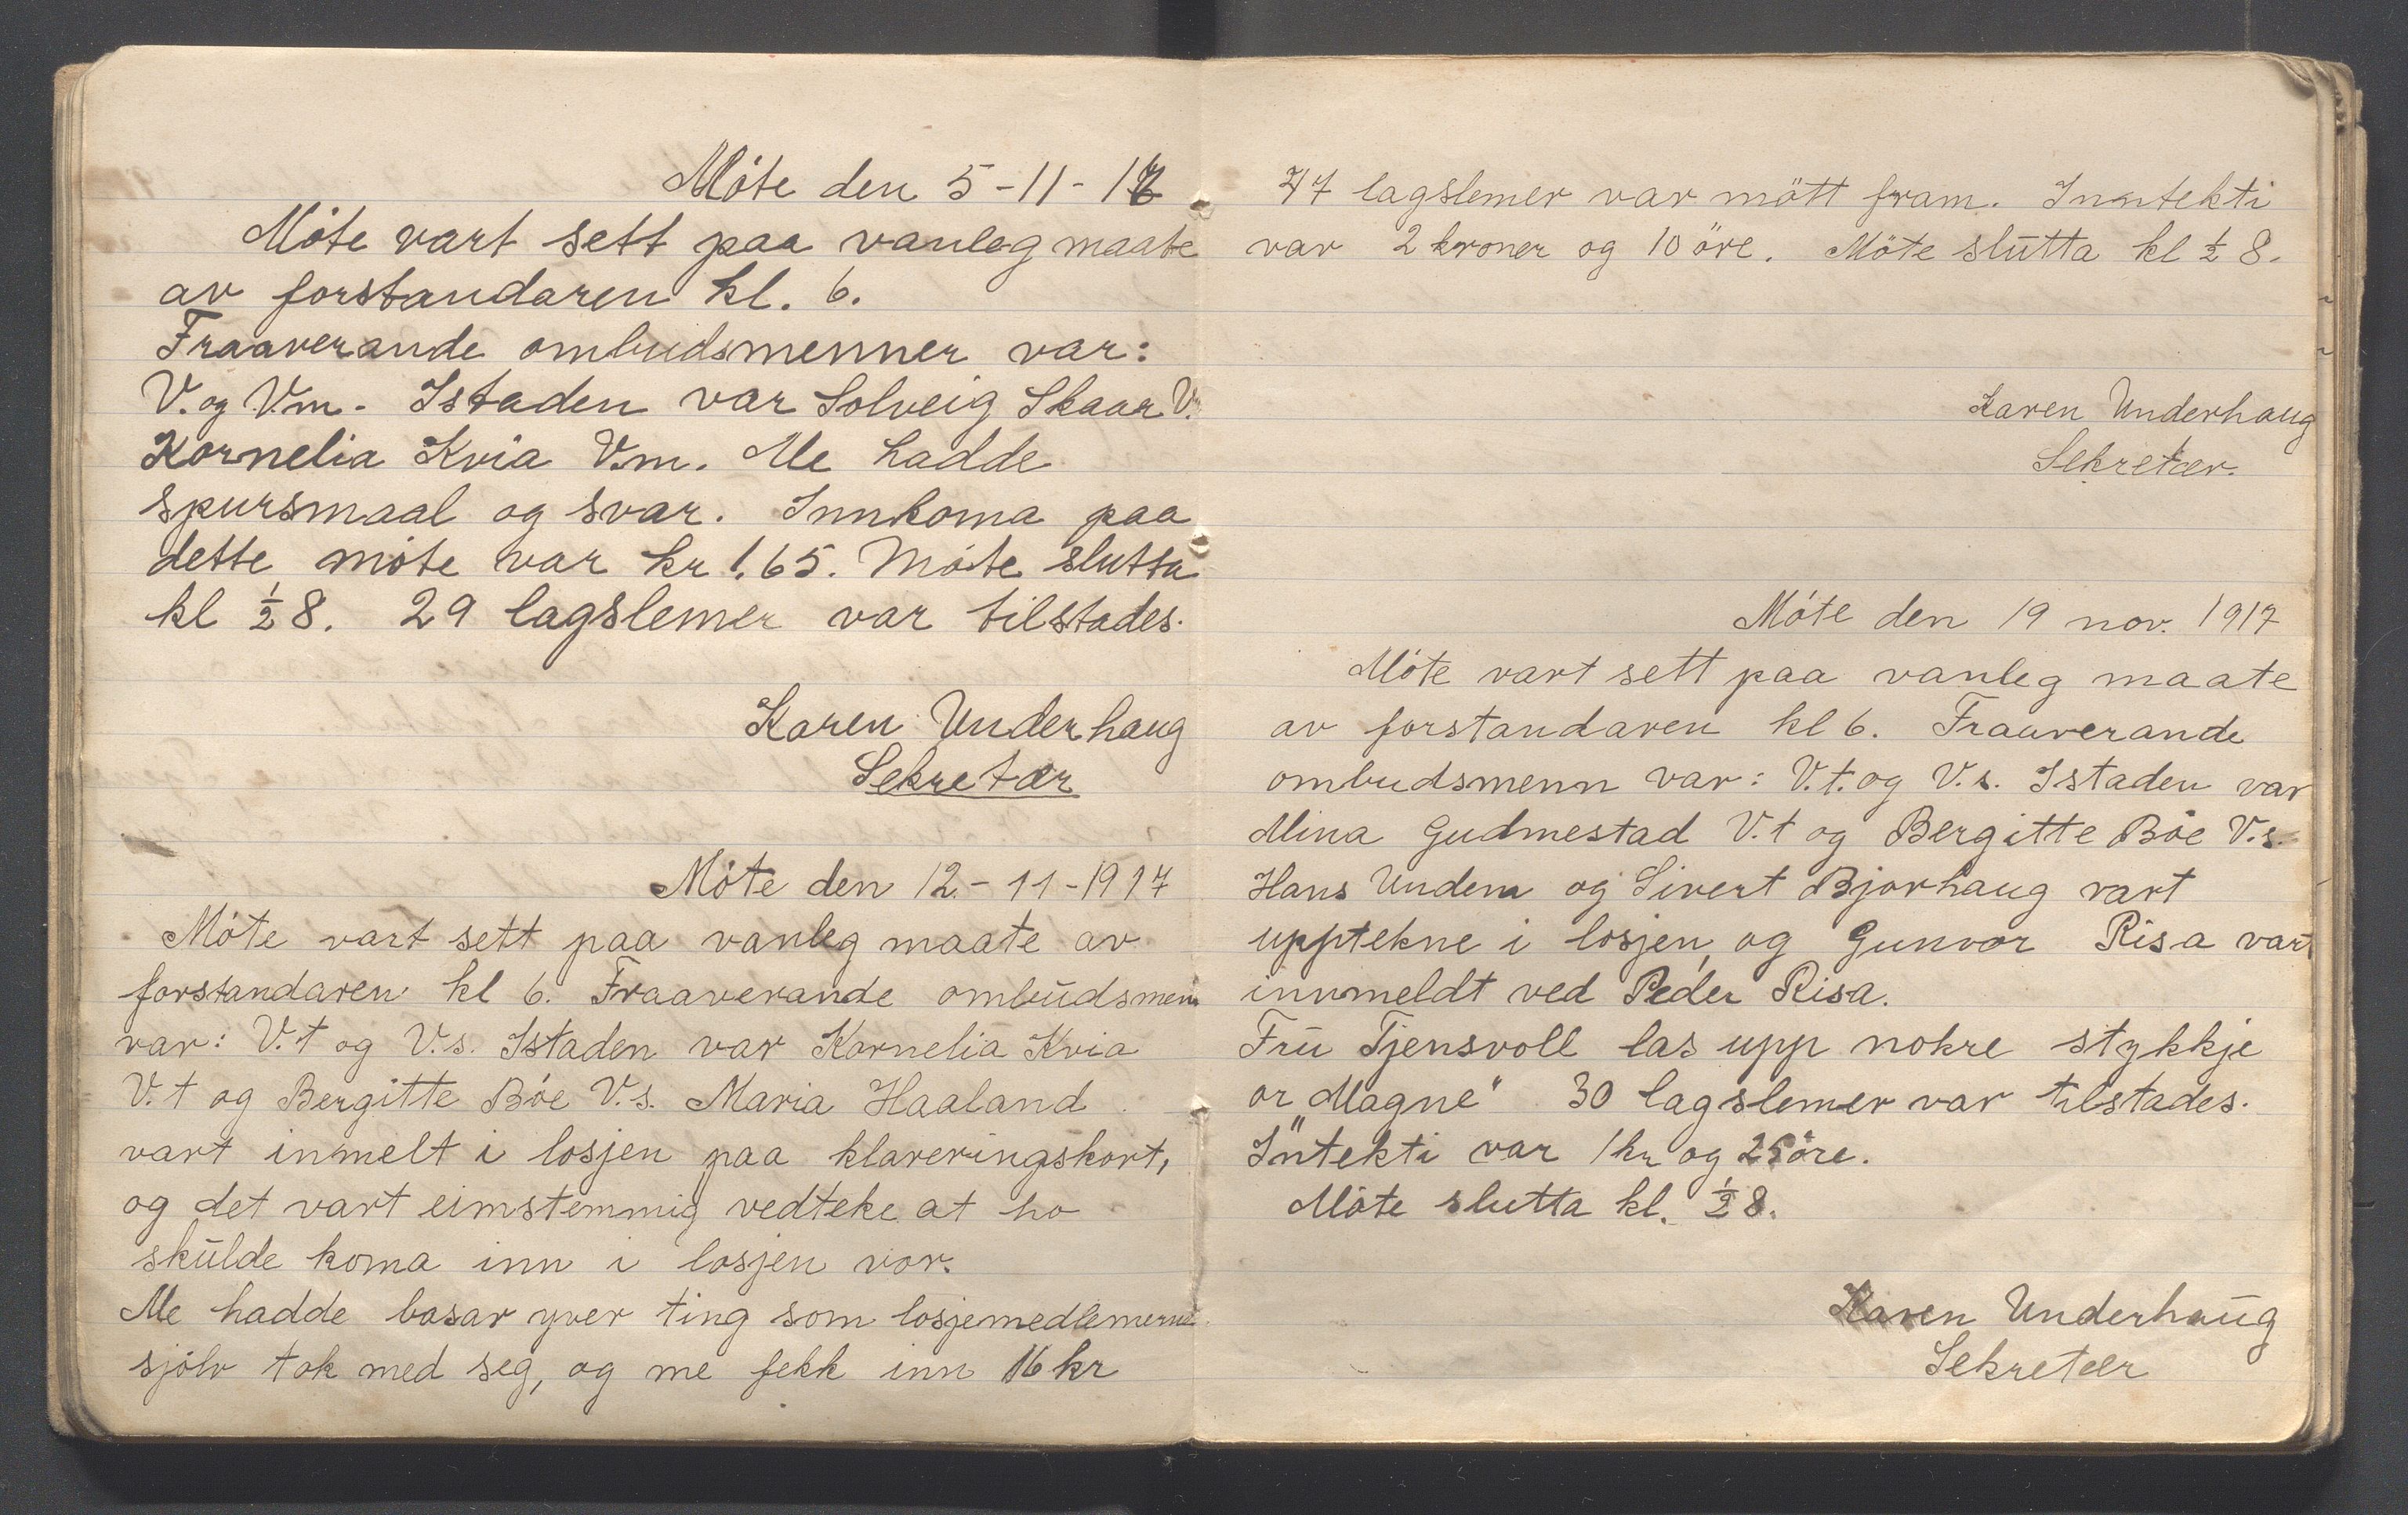 Møte den 5-11-17
Møte vart sett paa vanleg maate
av forstandaren kl. 6.
Fraaverande ombudsmenner var:
V. og V.m. Istaden var Solveig Skaar V.
Kornelia Kvia V.m. Me hadde
spursmaal og svar. Innkoma paa
dette møte var kr 1.65. Møte slutta
kl ½ 8. 29 lagslemer var tilstades.
Karen Underhaug
Sekretær
Møte den 12-11-1917
Møte vart sett paa vanleg maate av
forstandaren kl 6. Fraaverande ombudsmenn
var: V.t og V.s. Istaden var Kornelia Kvia
V.t og Bergitte Bøe V.s. Maria Haaland
vart inmelt i losjen paa klareringskort,
og det vart eimstemmig vedteke at ho
skulde koma inn i losjen vor.
Me hadde basar yver ting som losjemedlemerne
sjølv tok med seg, og me fekk inn 16 kr
47 lagslemer var møtt fram. Inntekti
var 2 kroner og 10 øre. Møte slutta kl ½ 8.
Karen Underhaug
Sekretær.
Møte den 19 nov. 1917
Møte vart sett paa vanleg maate
av forstandaren kl 6. Fraaverande
ombudsmenn var: V.t. og V.s. Istaden var
Mina Gudmestad V.t og Bergitte Bøe V.s.
Hans Undem og Sivert Bjorhaug vart
upptekne i losjen, og Gunvor Risa vart
innmeldt ved Peder Risa.
Fru Tjensvoll las upp nokre stykkje
or „Magne" 30 lagslemer var tilstades.
Inntekti var 1 kr og 25 øre.
Møte slutta kl. ½ 8.
Karen Underhaug
Sekretær